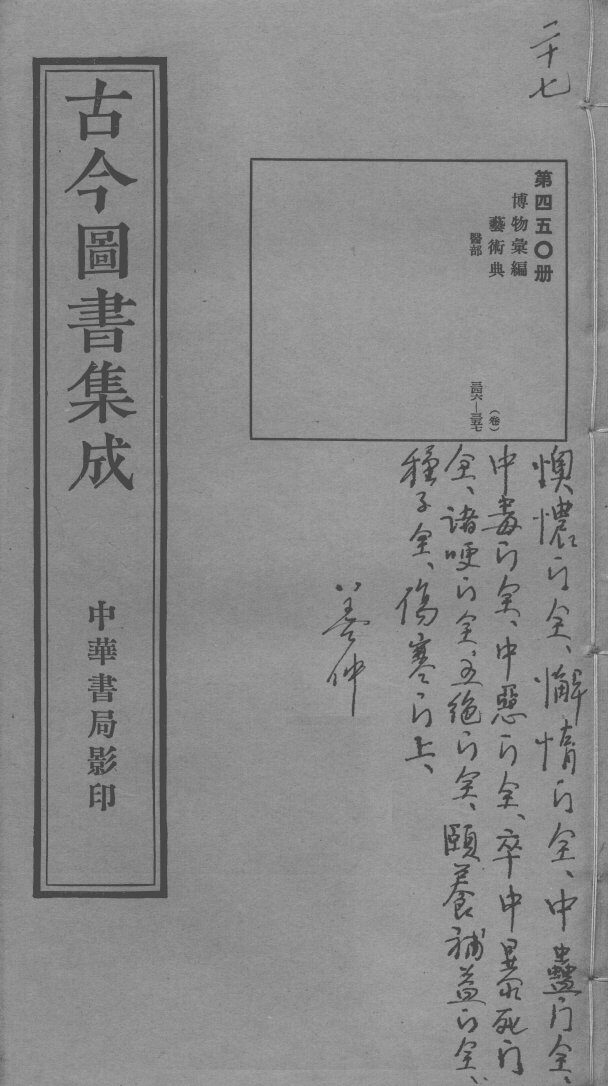 二十七
第四五〇册
博物彙編
藝術典
醫部
(卷)
三四六—三五七
懊憹门全、懈惰门全、中蠱门全、
中毒门全、中惡门全、卒中暴死门
全、諸哽门全、五絶门全、頤養補益门全、
種子全、傷寒门上、
古今圖書集成
中華書局影印